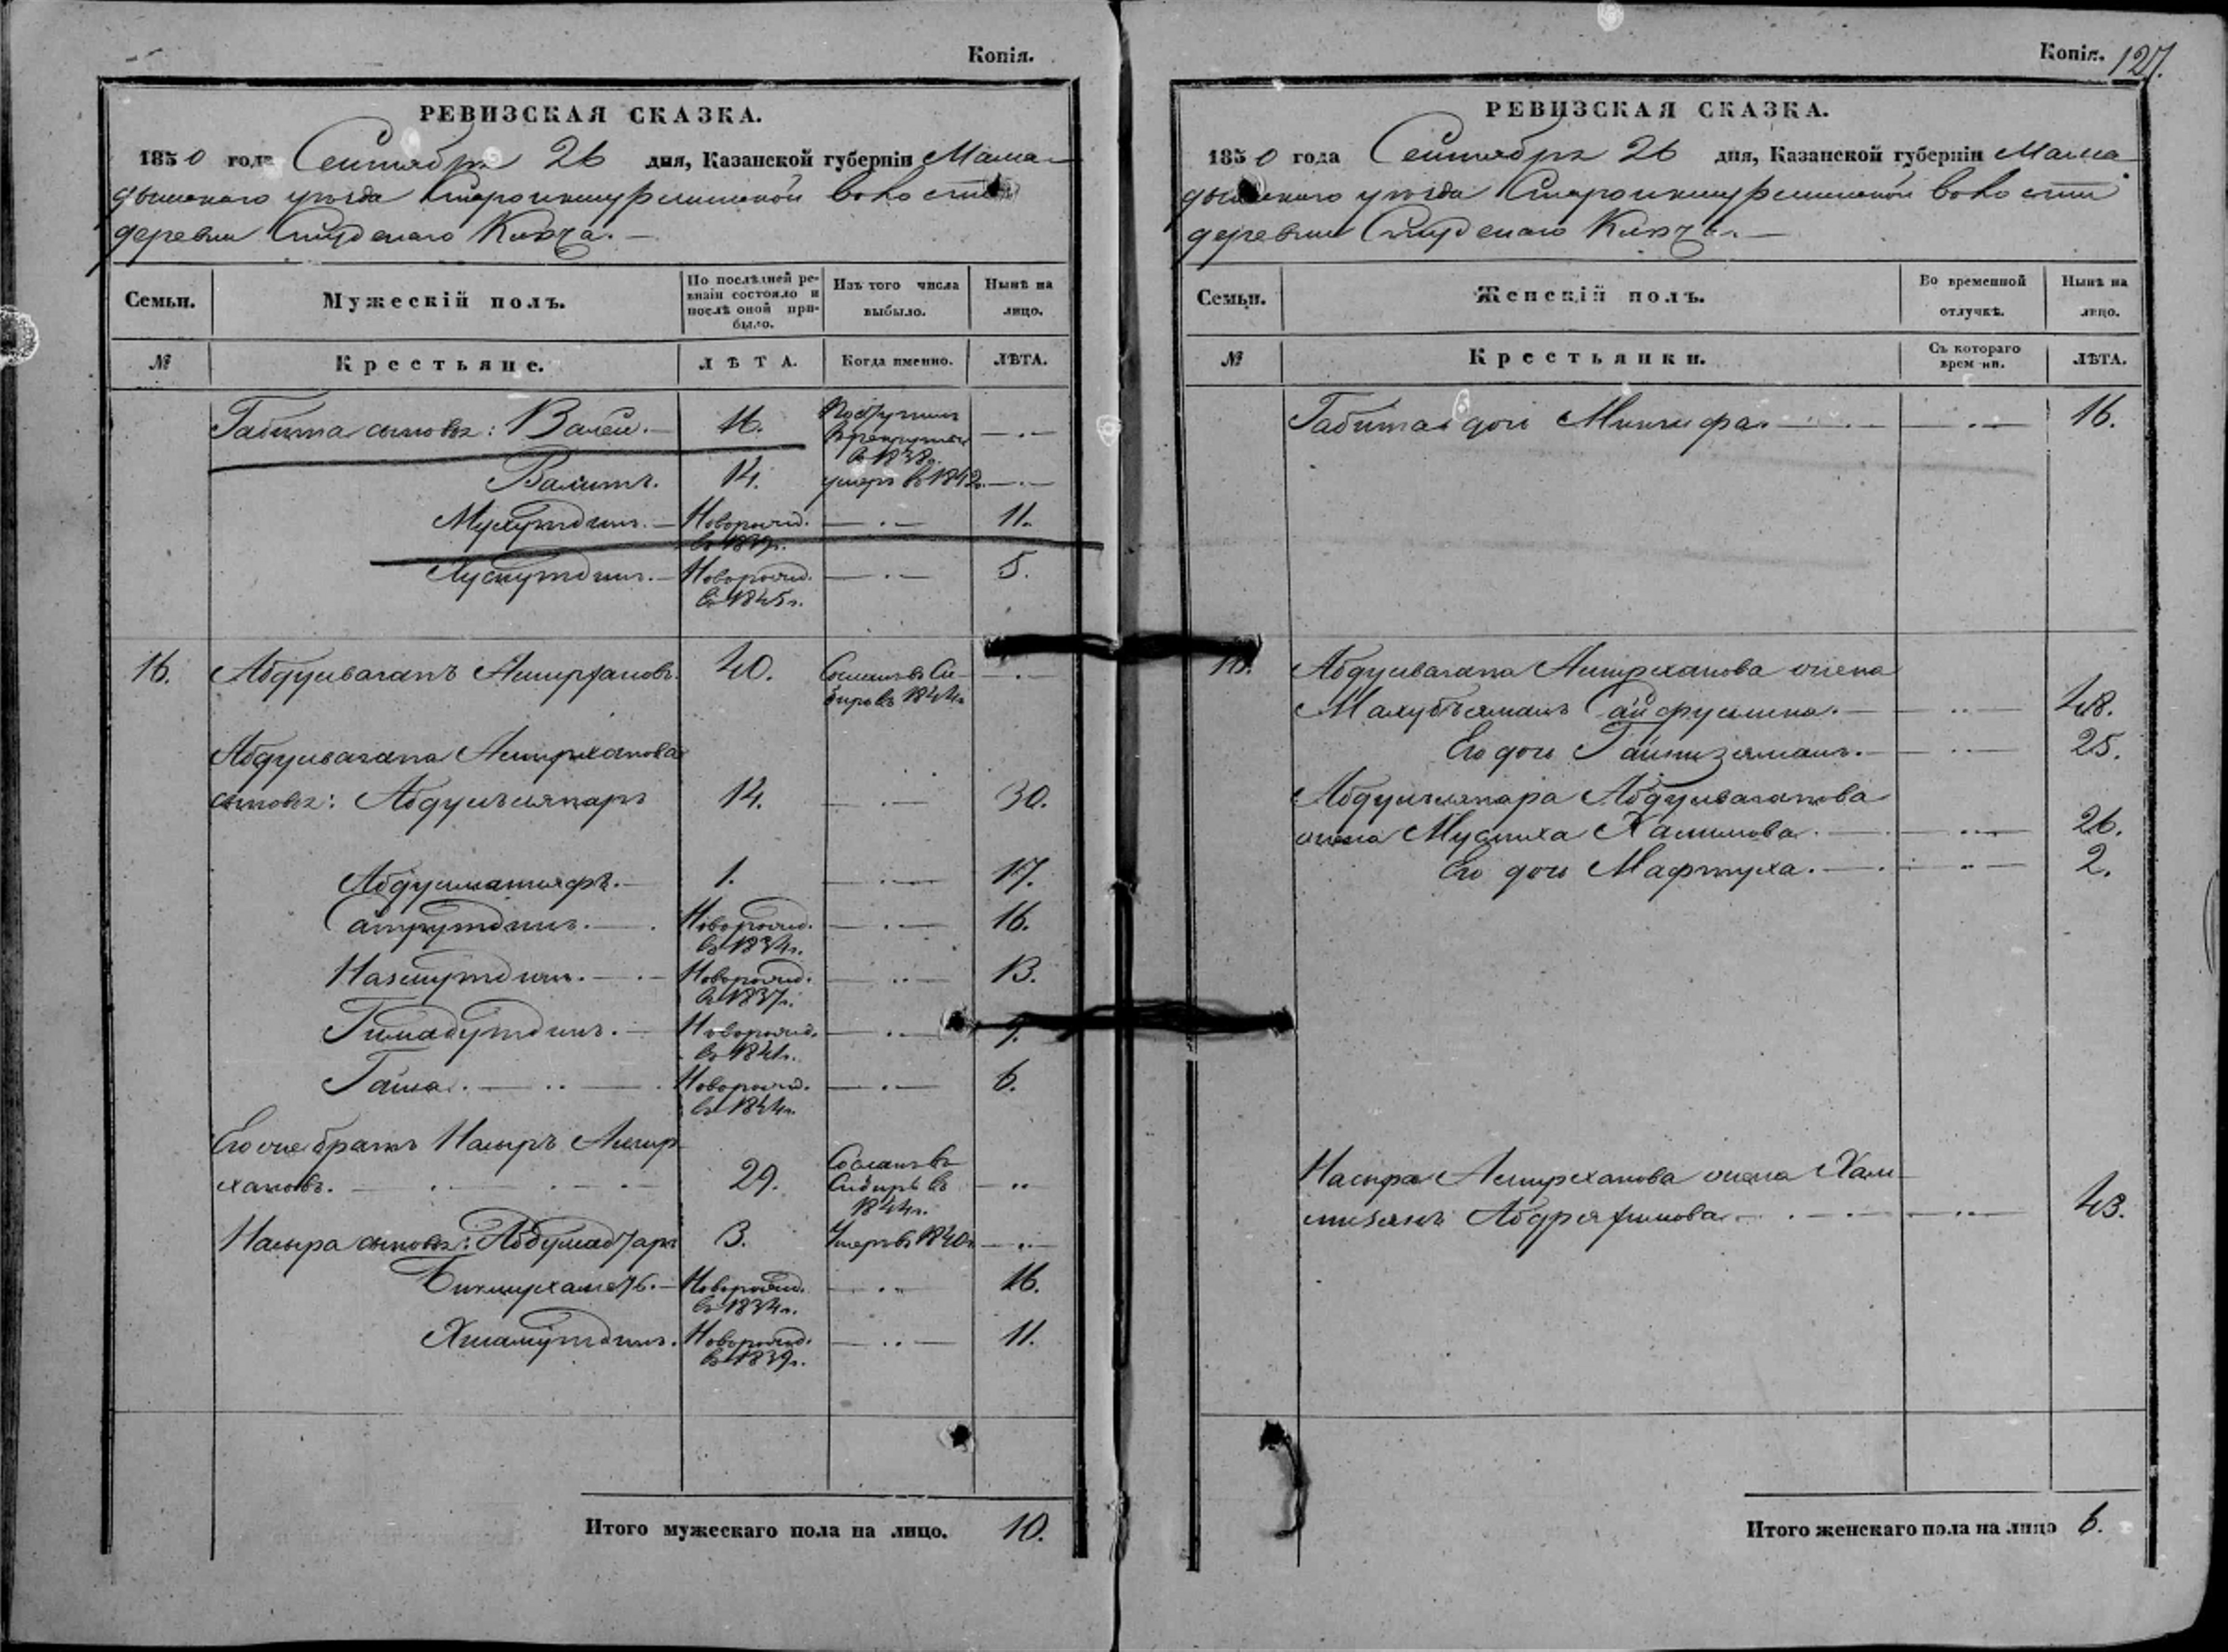 Копія.
РЕВИЗСКАЯ СКАЗКА.
1850 года Сентября 26 дня, Казанской губерніи Мама-
дышскаго уѣзда Староикшурминской волости
деревни Студенаго Ключа.
Семьи.
Мужескій полъ.
По послѣдней ре-
визіи состояло и
послѣ оной при-
было.
Изъ того числа
выбыло.
Нынѣ на
лицо.
№
Крестьяне.
ЛѢТА.
Когда именно.
ЛѢТА.
Габита сыновья: Валей. 16. Поступилъ
в рекруты
в 1838г.
Валитъ. 14. умеръ въ 1842г.
Мухутдинъ. Новорожд. 11.
въ 1839г.
Новорожд. 5.
въ 1845г.
16. Абдулвагапъ Амирхановъ. 40. Сосланъ въ Си-
бирь въ 1844г.
Абдулвагапа Амирханова
сыновья: Абдулъзяпаръ 14. 30.
1. 17.
Новорожд. 16.
въ 1834г.
Назмутдинъ. Новорожд. 13.
въ 1837г.
Гимадутдинъ. Новорожд. 9.
въ 1841г.
Новорожд. 6.
въ 1844г.
Его же братъ Насыръ Амир-
хановъ. 29. Сосланъ въ
Сибирь въ
1844г.
Насыра сыновья: 3. Умеръ въ 1840г.
Новорожд. 16.
въ 1834г.
Новорожд. 11.
въ 1839г.
Итого мужескаго пола на лицо. 10.
Копія. 127.
РЕВИЗСКАЯ СКАЗКА.
1850 года Сентября 26 дня, Казанской губерніи Мама-
дышскаго уѣзда Староикшурминской волости
деревни Студенаго Ключа.
Семьи.
Женскій полъ.
Во временной
отлучкѣ.
Нынѣ на
лицо.
№
Крестьянки.
Съ котораго
времени.
ЛѢТА.
Габита дочь 16.
16. Абдулвагапа Амирханова жена
Сайфулина. 48.
Его дочь 25.
Абдулъзяпара Абдулвагапова
жена Халилова. 26.
Его дочь Мафтуха. 2.
Насыра Амирханова жена
Абдряхимова. 43.
Итого женскаго пола на лицо 6.